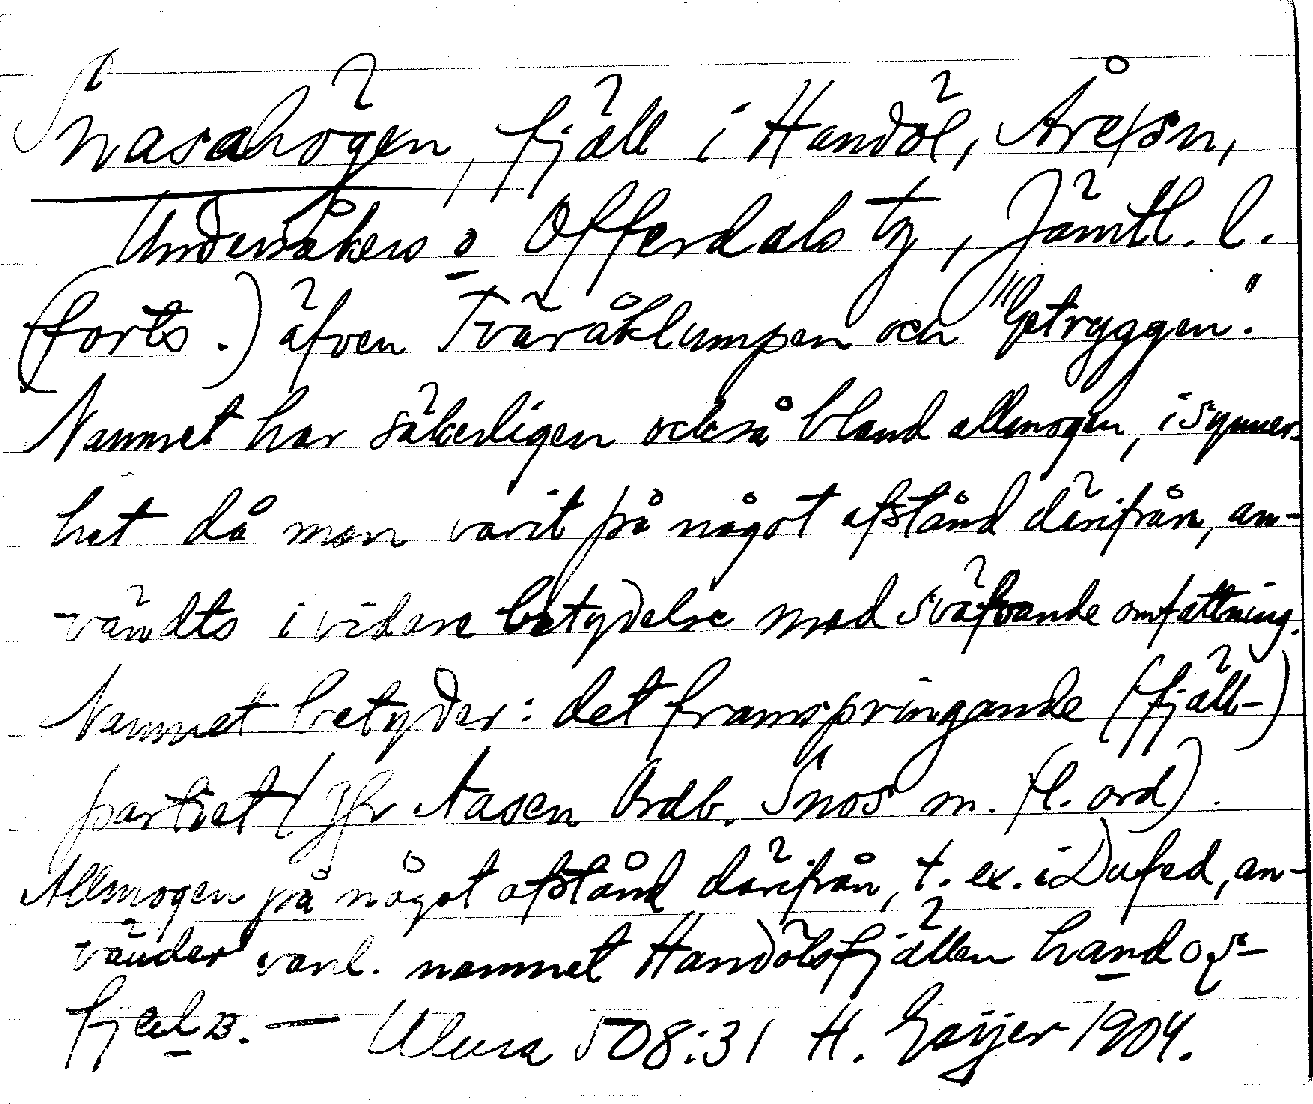 Snasahögen, fjäll i Handöl, Åre sn,
Undersåkers o Offerdals tg, Jämtl. l.
(forts.) äfven Tväråklumpen och "Getryggen."
Namnet har säkerligen också bland allmogen, i synner-
het då man varit på något afstånd därifrån, an-
vändts i vidare betydelse med sväfvande omfattning.
Namnet betyder: det framspringande (fjäll-)
partiet (Jfr Aasen Ordb. Snos m. (l. ord).
Allmogen på något afstånd därifrån, t. ex. i Dufed, an-
vänder vanl. namnet Handölsfjällen
— Ulma 508:31 H. Geijer 1904.